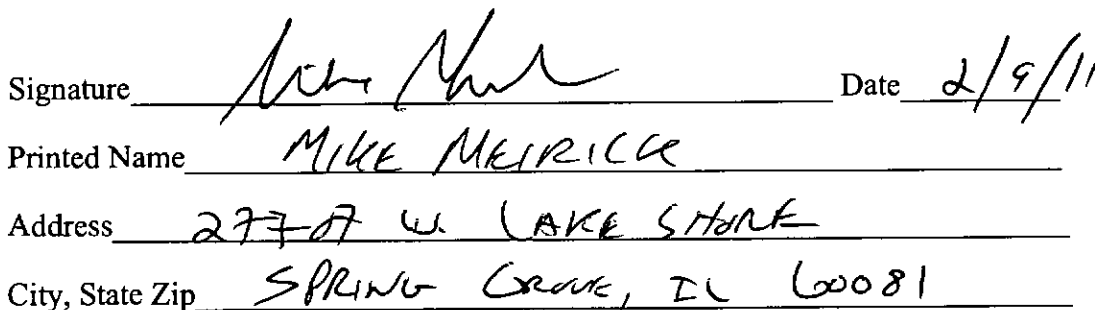 Signature Date 2/9/11
Printed Name MIKE MEIRICK
Address W. LAKE SHORE
City, State Zip SPRING GROVE, IL 60081